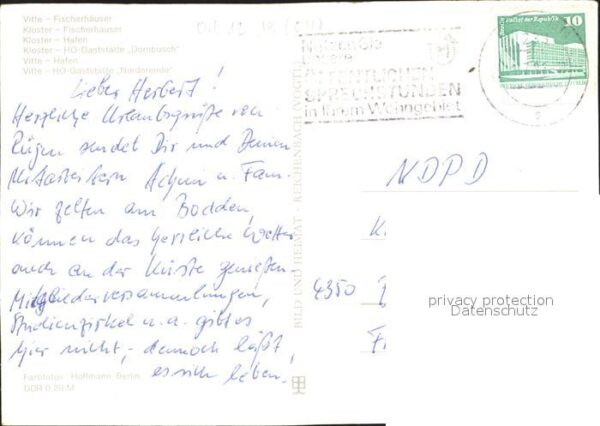 Vitte – Fischerhäuser
Kloster – Fischerhäuser
Kloster – Hafen
Kloster – HO-Gaststätte „Dornbusch"
Vitte – Hafen
Vitte – HO-Gaststätte „Norderende"
Lieber Herbert!
Herzliche Urlaubsgrüße von
Rügen sendet Dir und Deinen
Mitarbeitern Achim u. Fam.
Wir zelten am Bodden,
können das herrliche Wetter
auch an der Küste genießen.
Mitgliederversammlungen,
Studienzirkel u. a. gibt es
hier nicht, dennoch läßt
es sich leben.
Farbfotos: Hoffmann, Berlin
DDR 0,20 M
BILD UND HEIMAT · REICHENBACH (VOGTL)
Nutzen Sie
unsere
ÖFFENTLICHEN
SPRECHSTUNDEN
in Ihrem Wohngebiet
Berlin, Palast der Republik
10
NDPD
4350
privacy protection
Datenschutz